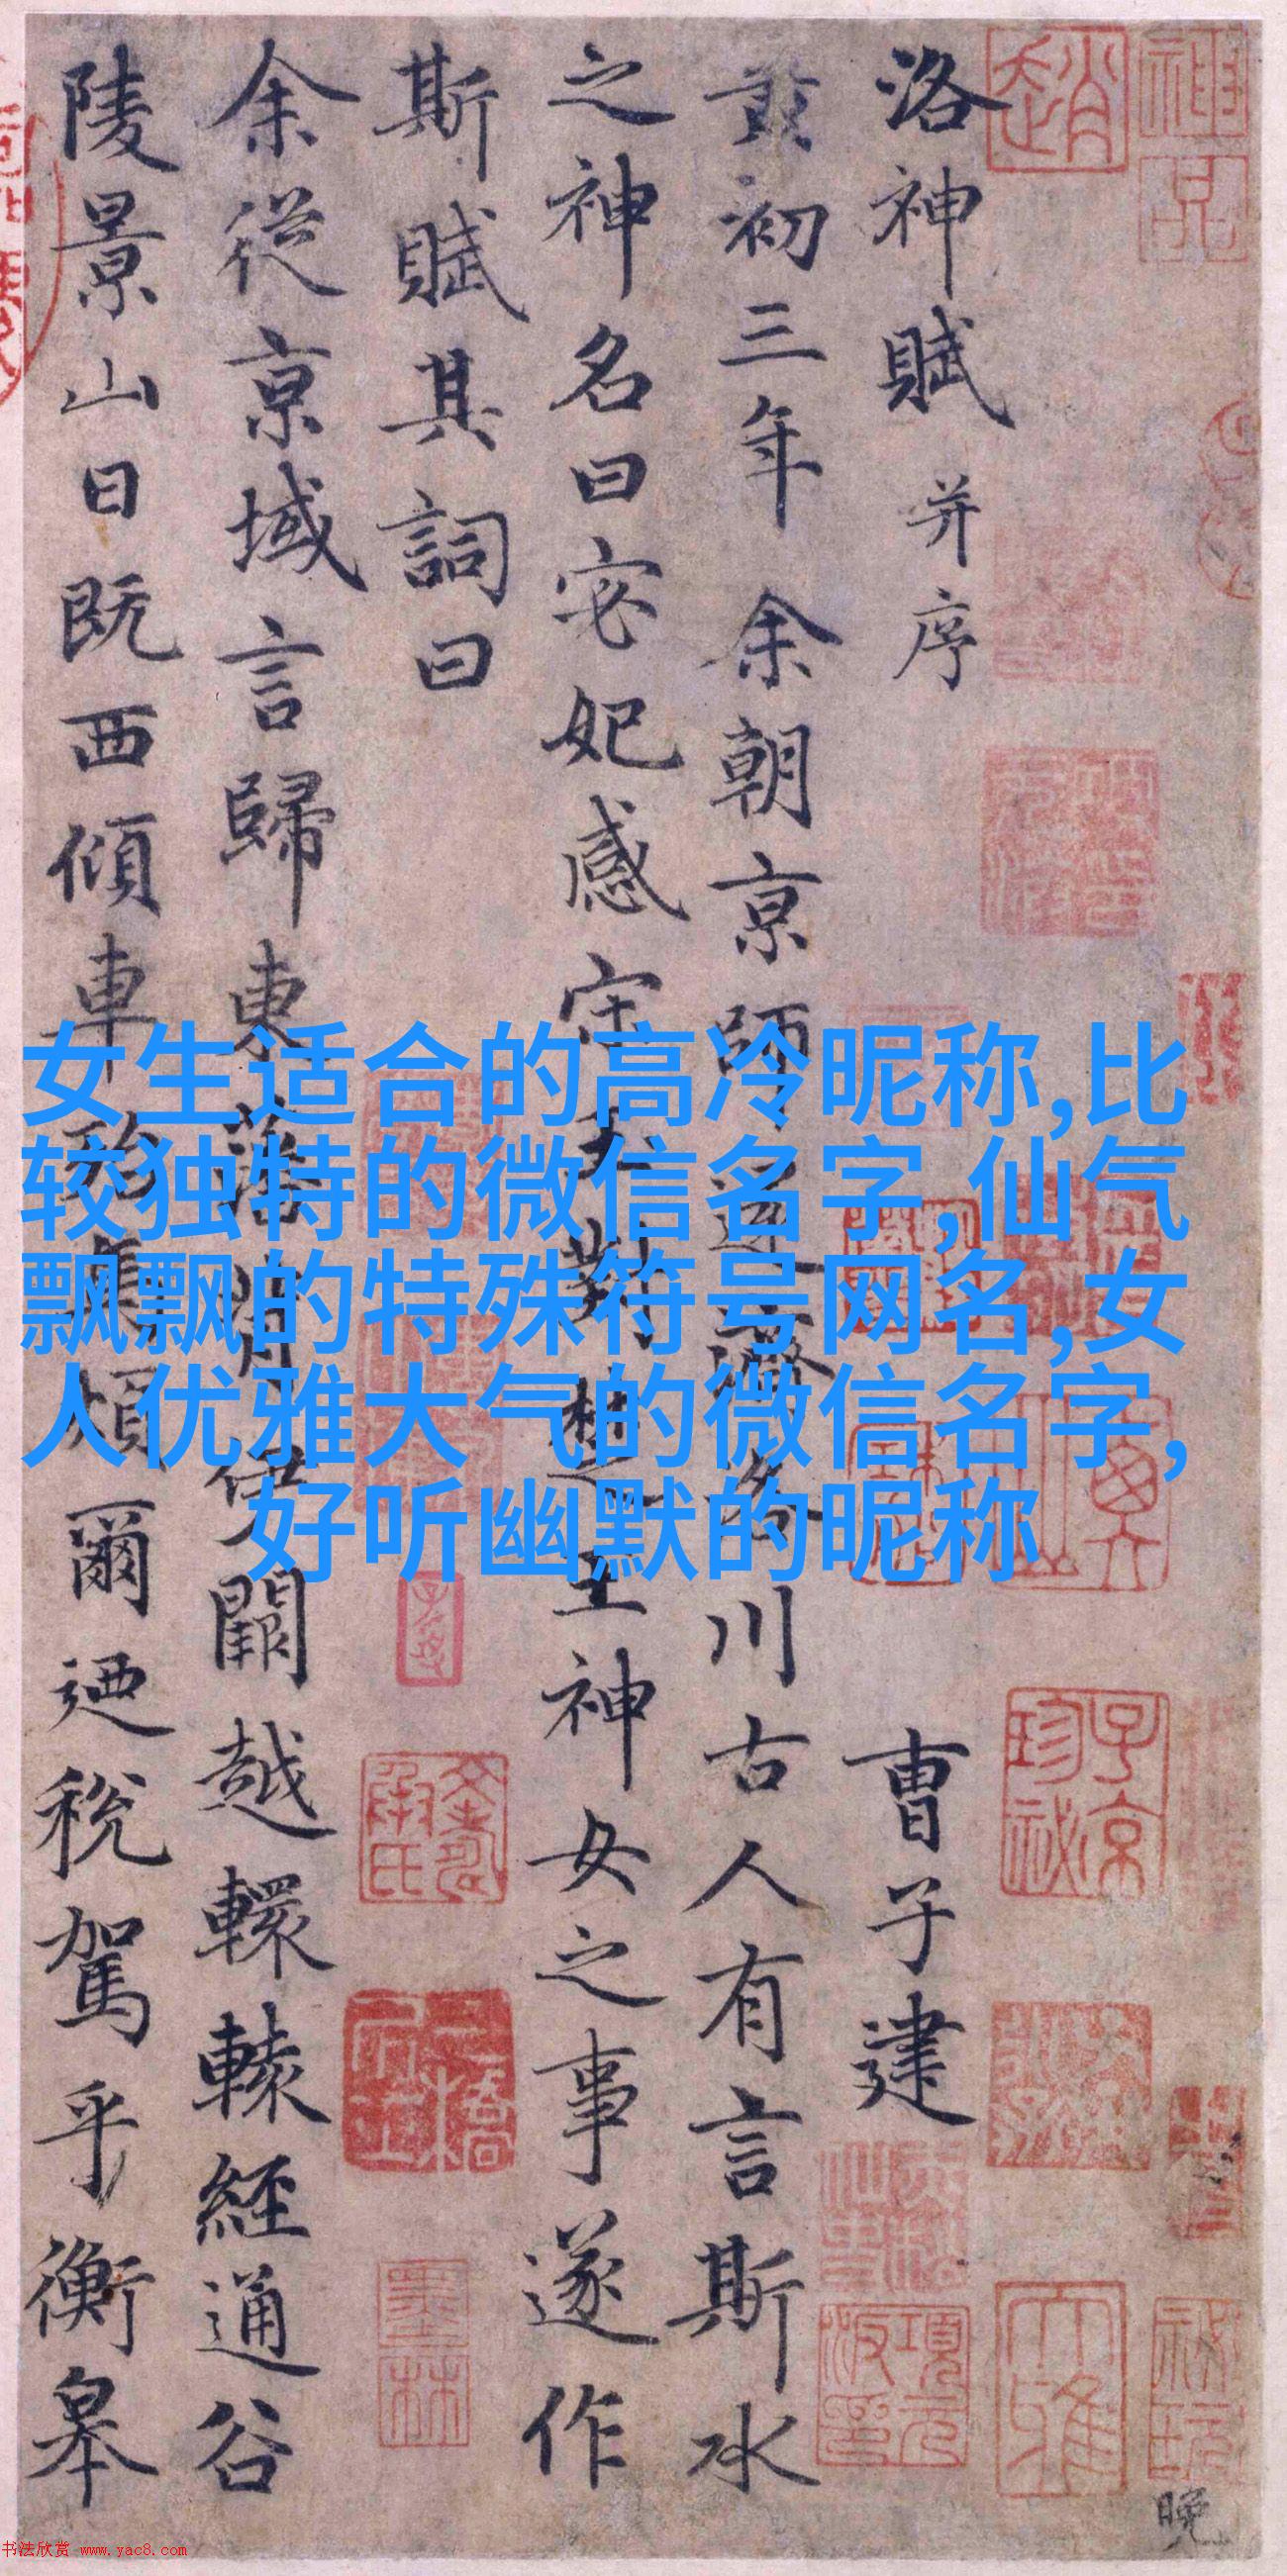 洛神賦 并序
曹子建
黃初三年余朝京師還濟洛川古人有言斯水
之神名曰宓妃感宋玉對楚王神女之事遂作
斯賦其詞曰
余從京域言歸東藩背伊闕越轘轅經通谷
陵景山日既西傾車殆馬煩爾迺稅駕乎衡皋
女生适合的高冷昵称,比
较独特的微信名字,仙气
飘飘的特殊符号网名,女
人优雅大气的微信名字,
好听幽默的昵称
趙
子京
珍祕
墨林
項元
晚
书法欣赏 www.yac8.com